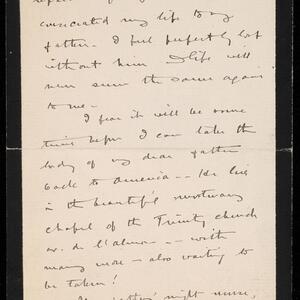 consecrated my life to my
father. I feel perfectly lost
without him & life will
never seem the same again
to me —
I fear it will be some
time before I can take the
body of my dear father
back to America — He lies
in the beautiful mortuary
chapel of the Trinity church
av. de l'Alma — with
many more — also waiting to
be taken!
night nurse,